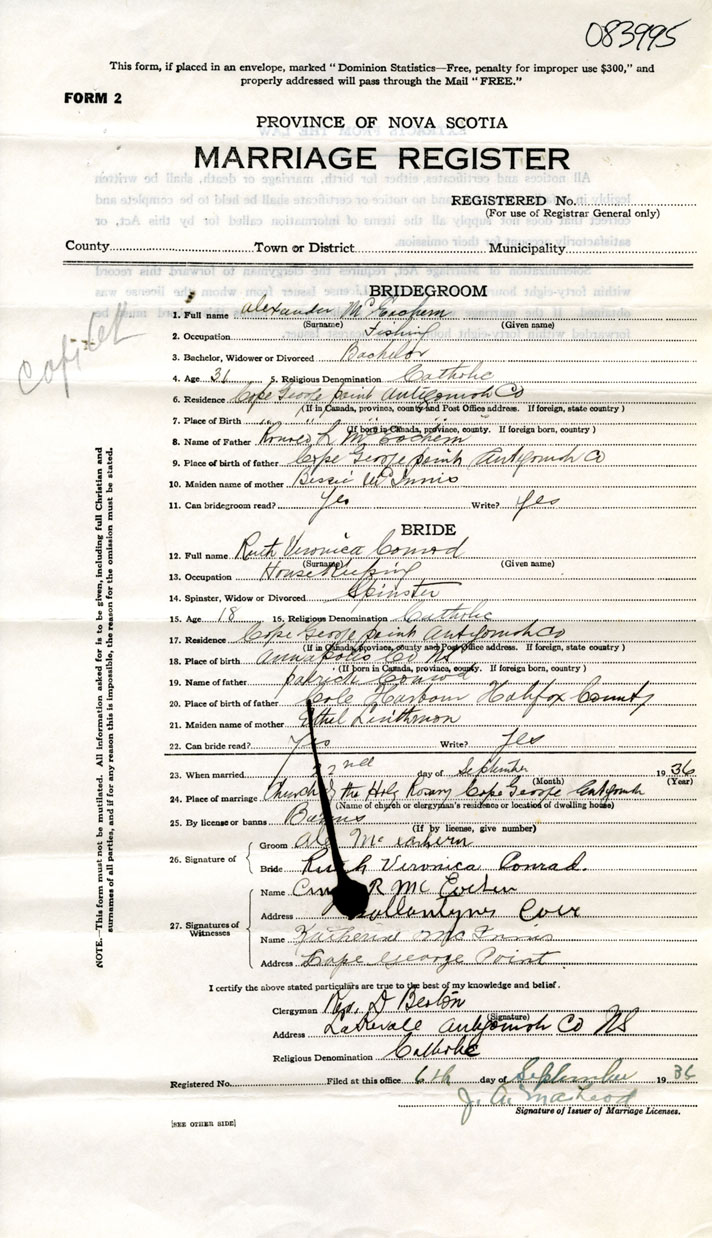 083995
This form, if placed in an envelope, marked "Dominion Statistics—Free, penalty for improper use $300," and
properly addressed will pass through the Mail "FREE."
FORM 2
PROVINCE OF NOVA SCOTIA
MARRIAGE REGISTER
REGISTERED No.
(For use of Registrar General only)
County Town or District Municipality
BRIDEGROOM
1. Full name Alexander McEachern
(Surname) (Given name)
2. Occupation Fishing
3. Bachelor, Widower or Divorced Bachelor
4. Age 31 5. Religious Denomination Catholic
6. Residence Cape George point Antigonish Co
(If in Canada, province, county and Post Office address. If foreign, state country)
7. Place of Birth " " " "
(If born in Canada, province, county. If foreign born, country)
8. Name of Father McEachern
9. Place of birth of father Cape George point Antigonish Co
10. Maiden name of mother Bessie McInnis
11. Can bridegroom read? Yes Write? Yes
BRIDE
12. Full name Ruth Veronica Conrod
(Surname) (Given name)
13. Occupation HouseKeeping
14. Spinster, Widow or Divorced Spinster
15. Age 18 16. Religious Denomination Catholic
17. Residence Cape George point Antigonish Co
(If in Canada, province, county and Post Office address. If foreign, state country)
18. Place of birth Annapolis Co NS
(If born in Canada, province, county. If foreign born, country)
19. Name of father Patrick Conrod
20. Place of birth of father Cole Harbour Halifox County
21. Maiden name of mother Ethel
22. Can bride read? Yes Write? Yes
23. When married 22nd day of September 1936
(Month) (Year)
24. Place of marriage Church of the Holy Rosary Cape George Antigonish
(Name of church or clergyman's residence or location of dwelling house)
25. By license or banns Banns
(If by license, give number)
26. Signature of
Groom McEachern
Bride Ruth Veronica Conrad.
27. Signatures of Witnesses
Name R Mc
Address Ballantynes Cove
Name Katherine McInnis
Address Cape George Point
I certify the above stated particulars are true to the best of my knowledge and belief.
Clergyman
(Signature)
Address Lakevale Antigonish Co NS
Religious Denomination Catholic
Registered No. Filed at this office 6th day of September 1936
J. A. MacLeod
Signature of Issuer of Marriage Licenses.
[SEE OTHER SIDE]
NOTE.—This form must not be mutilated. All information asked for is to be given, including full Christian and
surnames of all parties, and if for any reason this is impossible, the reason for the omission must be stated.